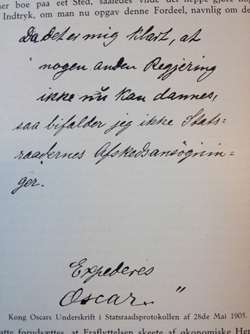 er boe paa eet Sted, saaledes vilde det neppe gjøre no
Indtryk, om man nu opgav denne Fordeel, navnlig om de
Da det er mig klart, at
nogen anden Regjering
ikke nu kan dannes,
saa bifalder jeg ikke Stats-
raadernes Afskedsansøgnin-
ger.
Expederes
Oscar."
Kong Oscars Underskrift i Statsraadsprotokollen af 28de Mai 1905.
atte forudsættes, at Fraflyttelsen skeete af økonomiske Hen